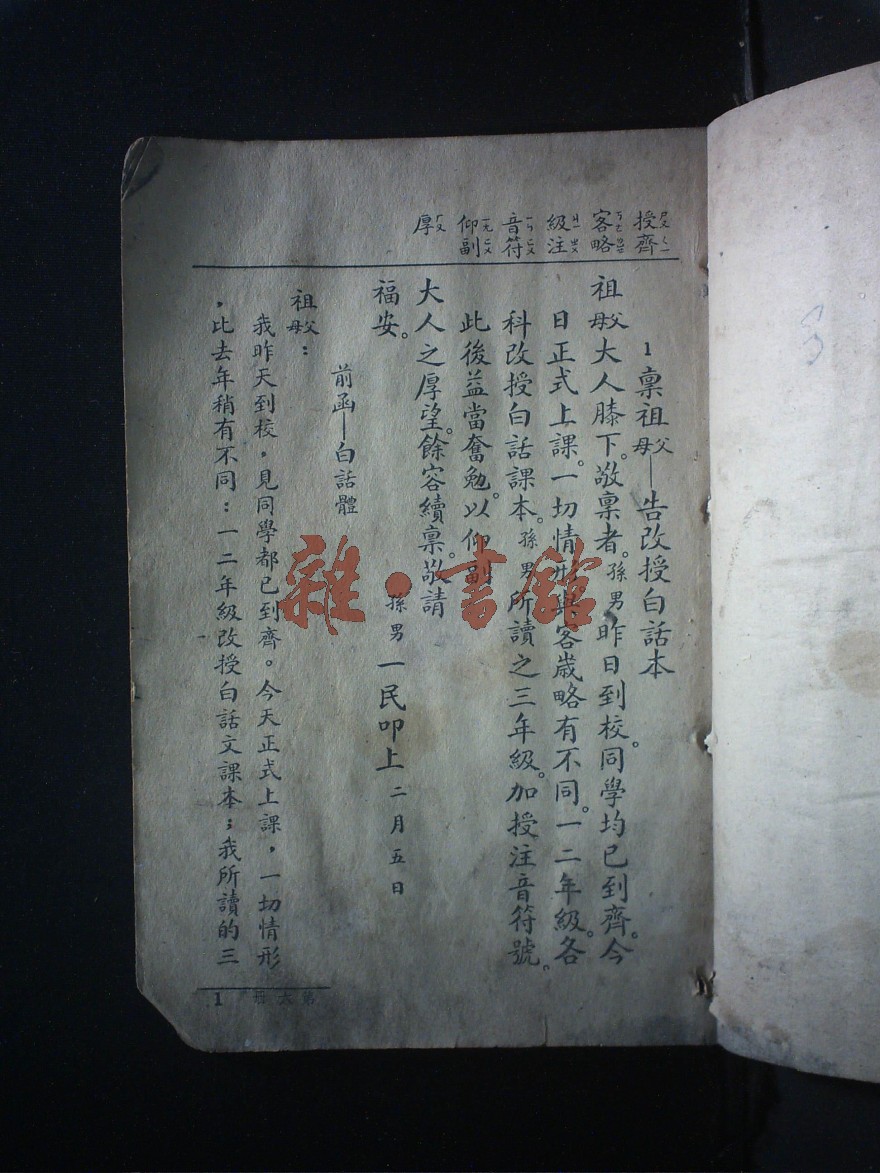 授齊
客略
級注
音符
仰副
厚
1 稟祖父母—告改授白話本
祖父母大人膝下。敬稟者。孫男昨日到校。同學均已到齊。今
日正式上課。一切情形與客歲略有不同。一二年級。各
科改授白話課本。孫男所讀之三年級。加授注音符號。
此後益當奮勉。以仰副
大人之厚望。餘容續稟。敬請
福安。
孫男一民叩上 二月五日
前函—白話體
祖父母：
我昨天到校，見同學都已到齊。今天正式上課，一切情形
，比去年稍有不同：一二年級改授白話文課本；我所讀的三
第六册 1
雜·書館